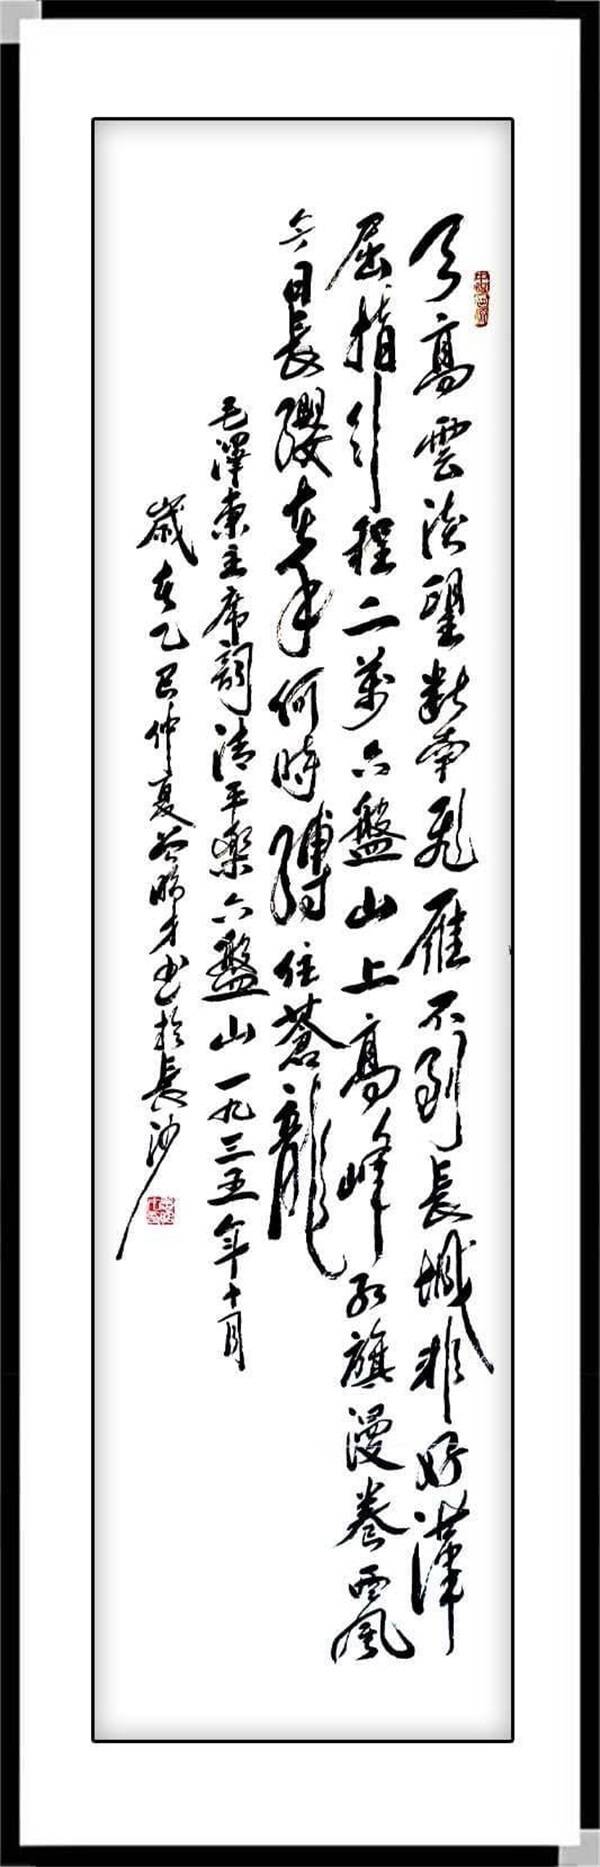 天高雲淡望斷南飛雁不到長城非好漢
屈指行程二萬六盤山上高峰紅旗漫卷西風
今日長纓在手何時縛住蒼龍
毛澤東主席詞清平樂六盤山一九三五年十月
歲在乙巳仲夏 才书於長沙